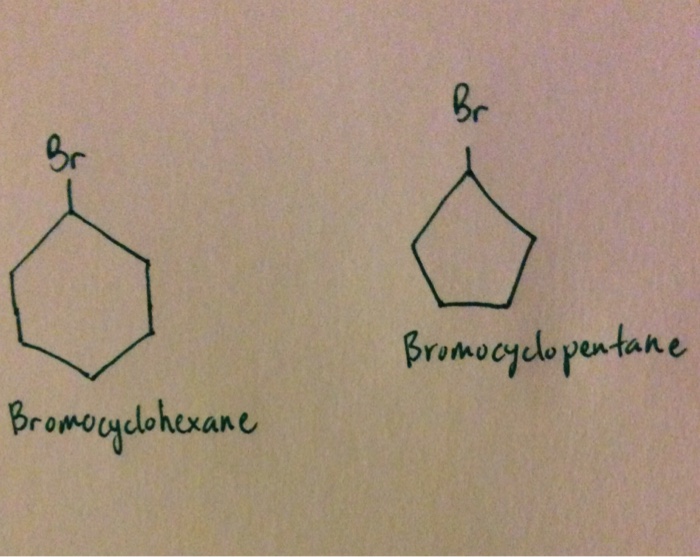 Br
Bromocyclohexane
Br
Bromocyclopentane